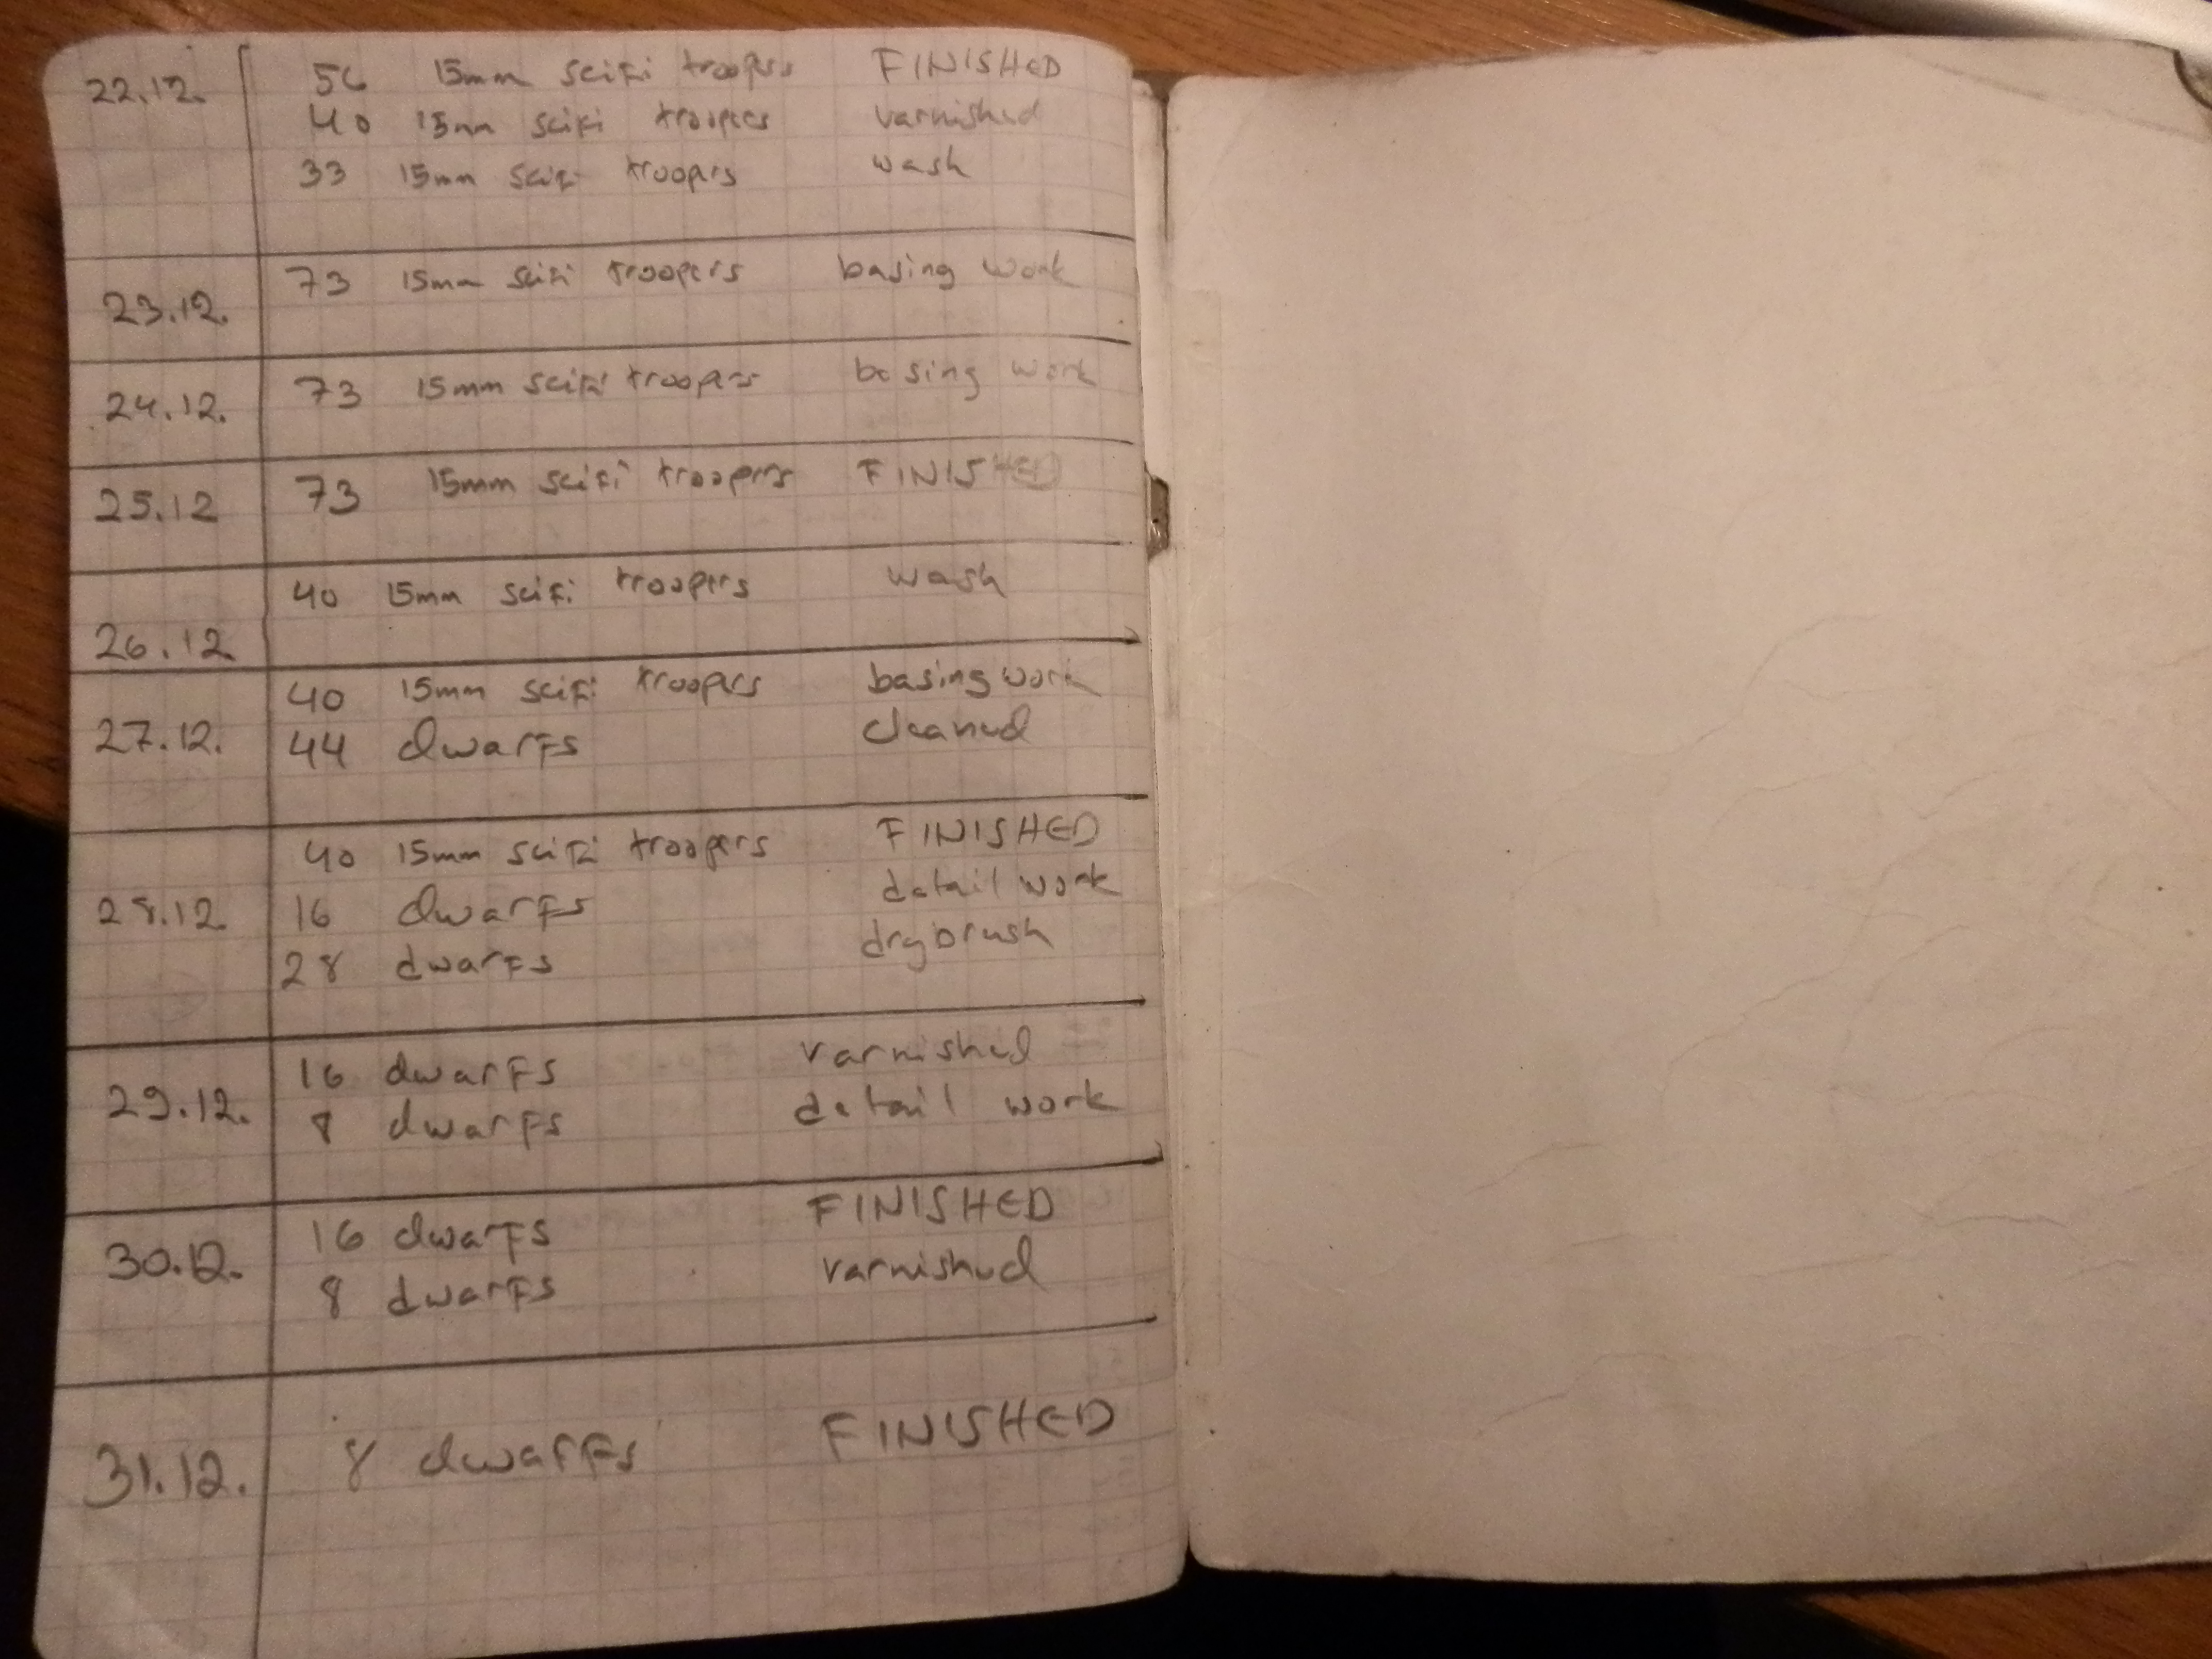 22.12. 56 15mm scifi troopers FINISHED
40 15mm scifi troopers varnished
33 15mm scifi troopers wash
23.12. 73 15mm scifi troopers basing work
24.12. 73 15mm scifi troopers basing work
25.12 73 15mm scifi troopers FINISHED
26.12 40 15mm scifi troopers wash
40 15mm scifi troopers basing work
27.12. 44 dwarfs cleaned
40 15mm scifi troopers FINISHED
28.12. 16 dwarfs detail work
28 dwarfs drybrush
29.12. 16 dwarfs varnished
8 dwarfs detail work
30.12. 16 dwarfs FINISHED
8 dwarfs varnished
31.12. 8 dwarfs FINISHED